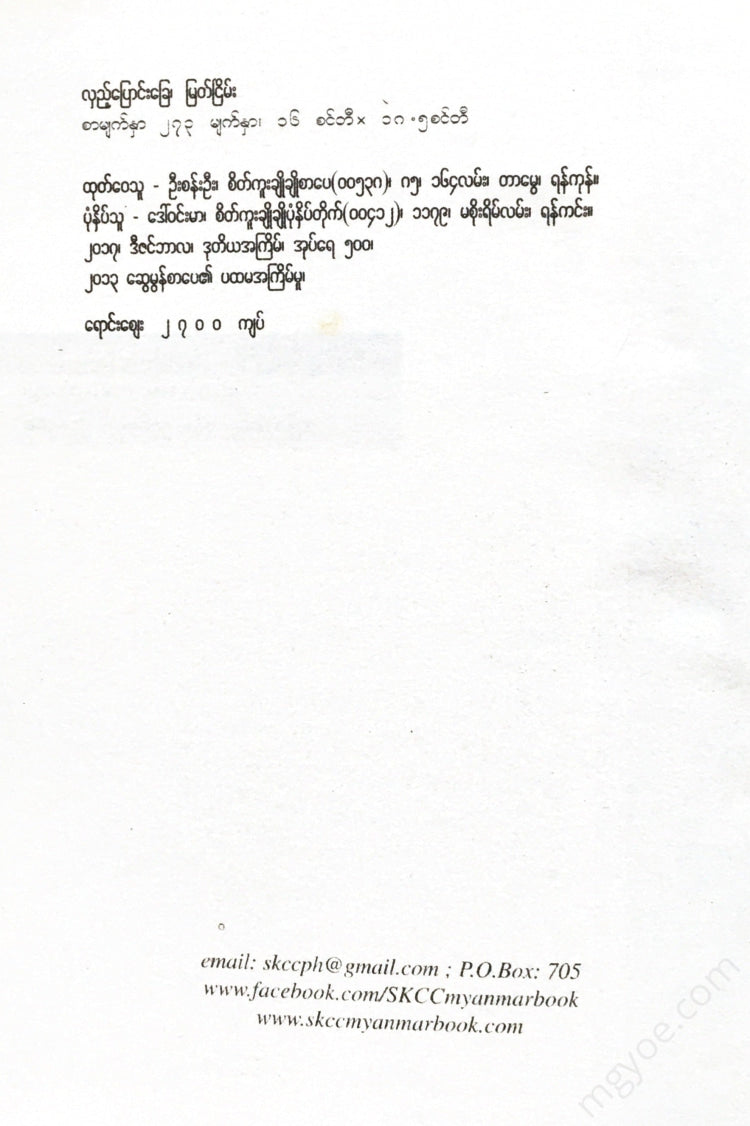 လှည့်ပြောင်းခြေ၊ မြတ်ငြိမ်း
စာမျက်နှာ ၂၇၃ မျက်နှာ၊ ၁၆ စင်တီ × ၁၈.၅စင်တီ
ထုတ်ဝေသူ - ဦးစန်းဦး၊ စိတ်ကူးချိုချိုစာပေ(၀၀၅၃၈)၊ ၈၅၊ ၁၆၄လမ်း၊ တာမွေ၊ ရန်ကုန်။
ပုံနှိပ်သူ - ဒေါ်ဝင်းမာ၊ စိတ်ကူးချိုချိုပုံနှိပ်တိုက်(၀၀၄၁၂)၊ ၁၁၇၉၊ မစိုးရိမ်လမ်း၊ ရန်ကင်း။
၂၀၁၇၊ ဒီဇင်ဘာလ၊ ဒုတိယအကြိမ်၊ အုပ်ရေ ၅၀၀၊
၂၀၁၃ ဆွေမွန်စာပေ၏ ပထမအကြိမ်မူ၊
ရောင်းဈေး ၂၇၀၀ ကျပ်
email: skccph@gmail.com ; P.O.Box: 705
www.facebook.com/SKCCmyanmarbook
www.skccmyanmarbook.com
mgyoe.com